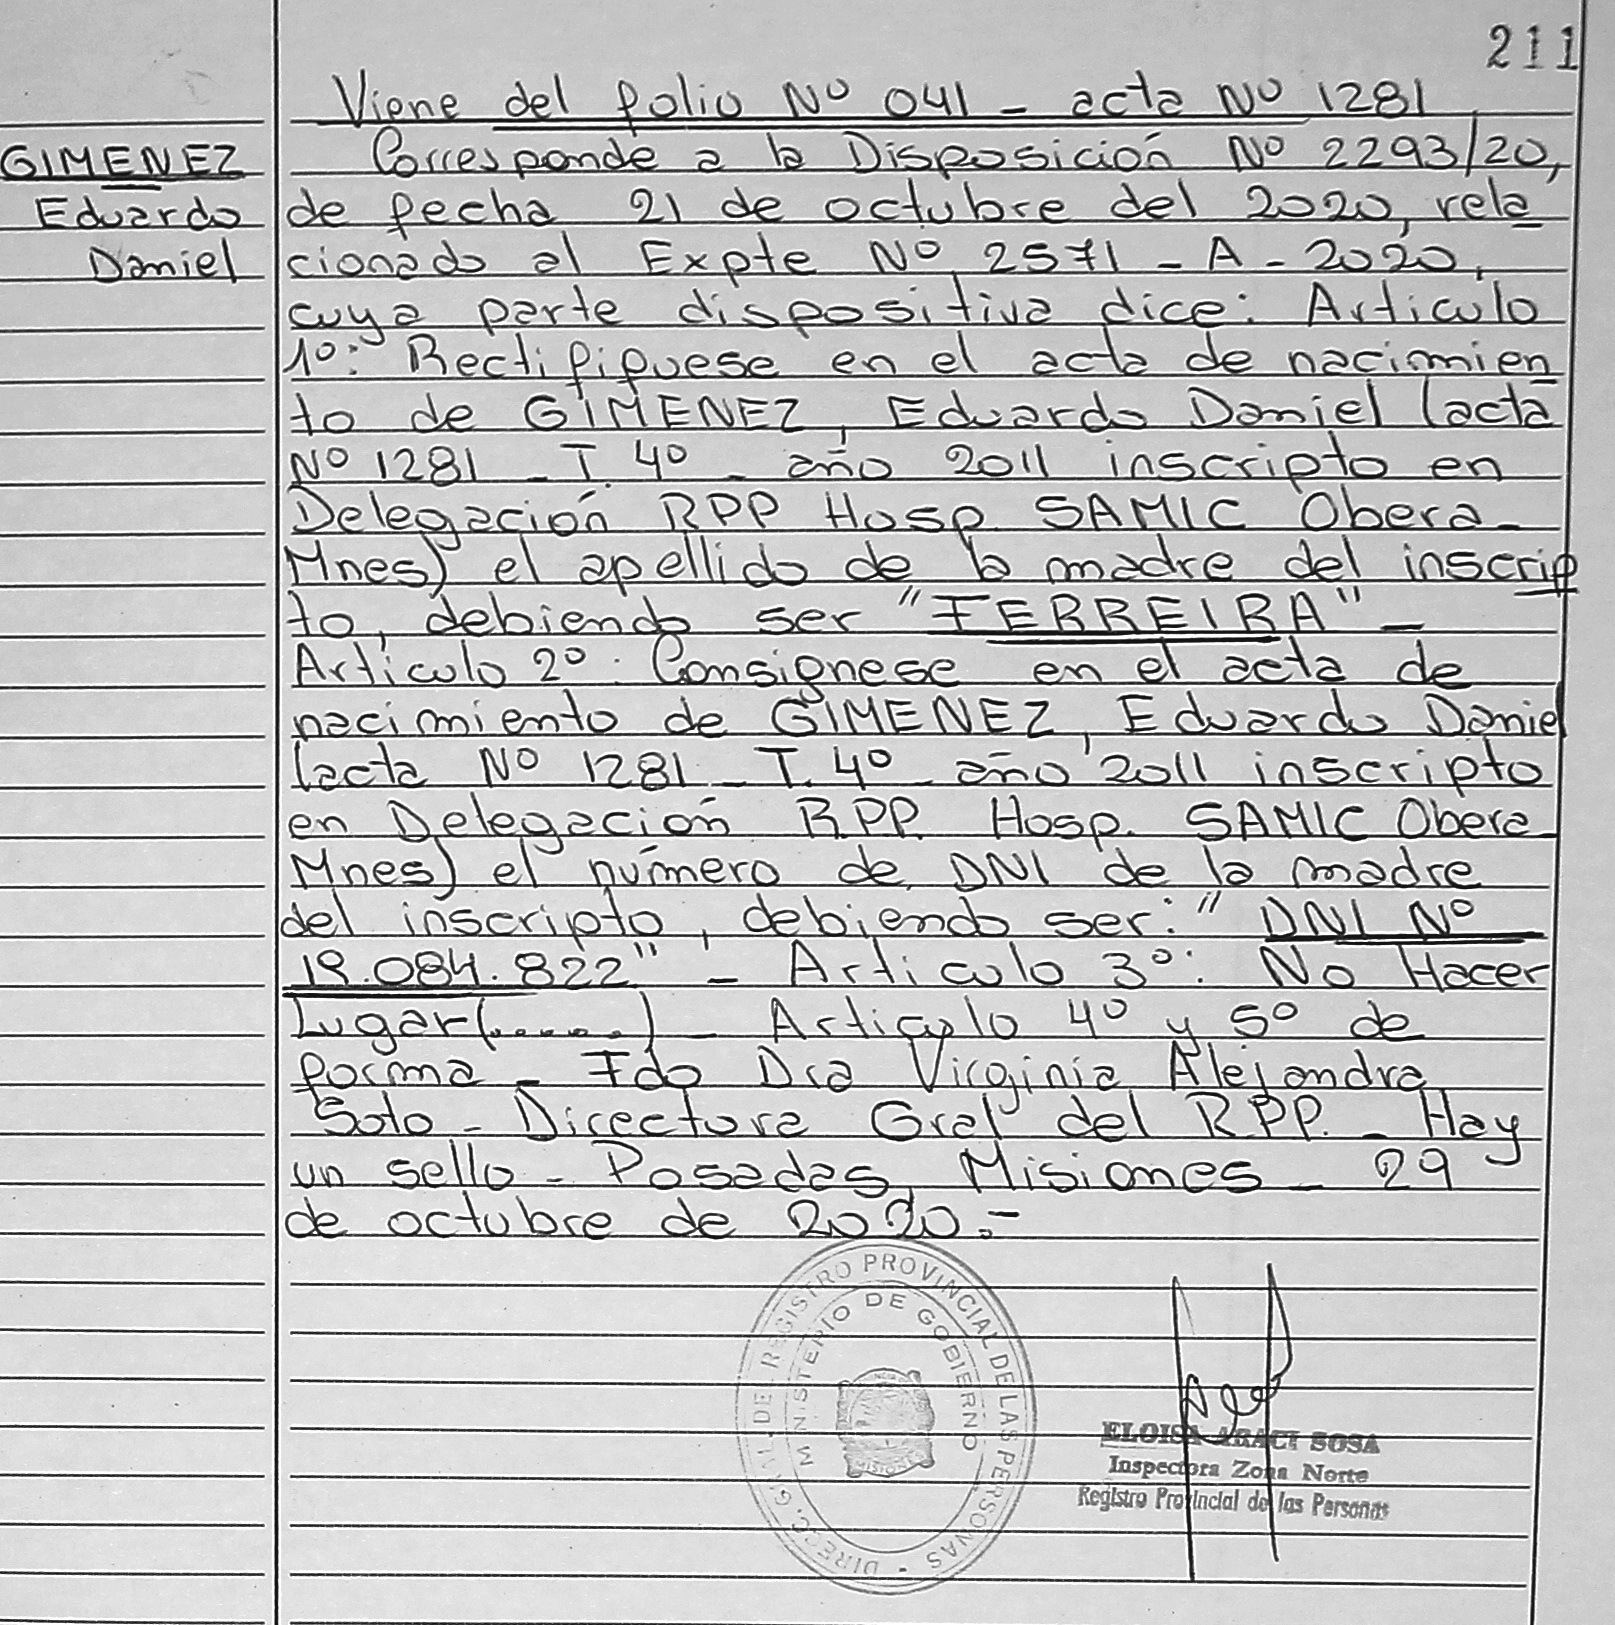 211
Viene del folio Nº 041 - acta Nº 1281
GIMENEZ
Eduardo
Daniel
Corresponde a la Disposición Nº 2293/20,
de fecha 21 de octubre del 2020, rela
cionado al Expte Nº 2571 - A - 2020,
cuya parte dispositiva dice: Articulo
1º: Rectifiquese en el acta de nacimien
to de GIMENEZ, Eduardo Daniel (acta
Nº 1281 - T. 4º - año 2011 inscripto en
Delegación RPP Hosp. SAMIC Obera -
Mnes) el apellido de la madre del inscrip
to, debiendo ser "FERREIRA" -
Artículo 2º: Consignese en el acta de
nacimiento de GIMENEZ, Eduardo Daniel
(acta Nº 1281 - T. 4º - año 2011 inscripto
en Delegación R.P.P. Hosp. SAMIC Obera -
Mnes) el número de DNI de la madre
del inscripto, debiendo ser: "DNI Nº
19.084.822" - Articulo 3º: No Hacer
Lugar (.....) - Articulo 4º y 5º de
forma - Fdo Dra Virginia Alejandra
Soto - Directora Gral del R.P.P. - Hay
un sello - Posadas, Misiones - 29
de octubre de 2020.-
DIRECC. GRAL. DE REGISTRO PROVINCIAL DE LAS PERSONAS
MINISTERIO DE GOBIERNO
MISIONES
ELOISA ARACI SOSA
Inspectora Zona Norte
Registro Provincial de las Personas